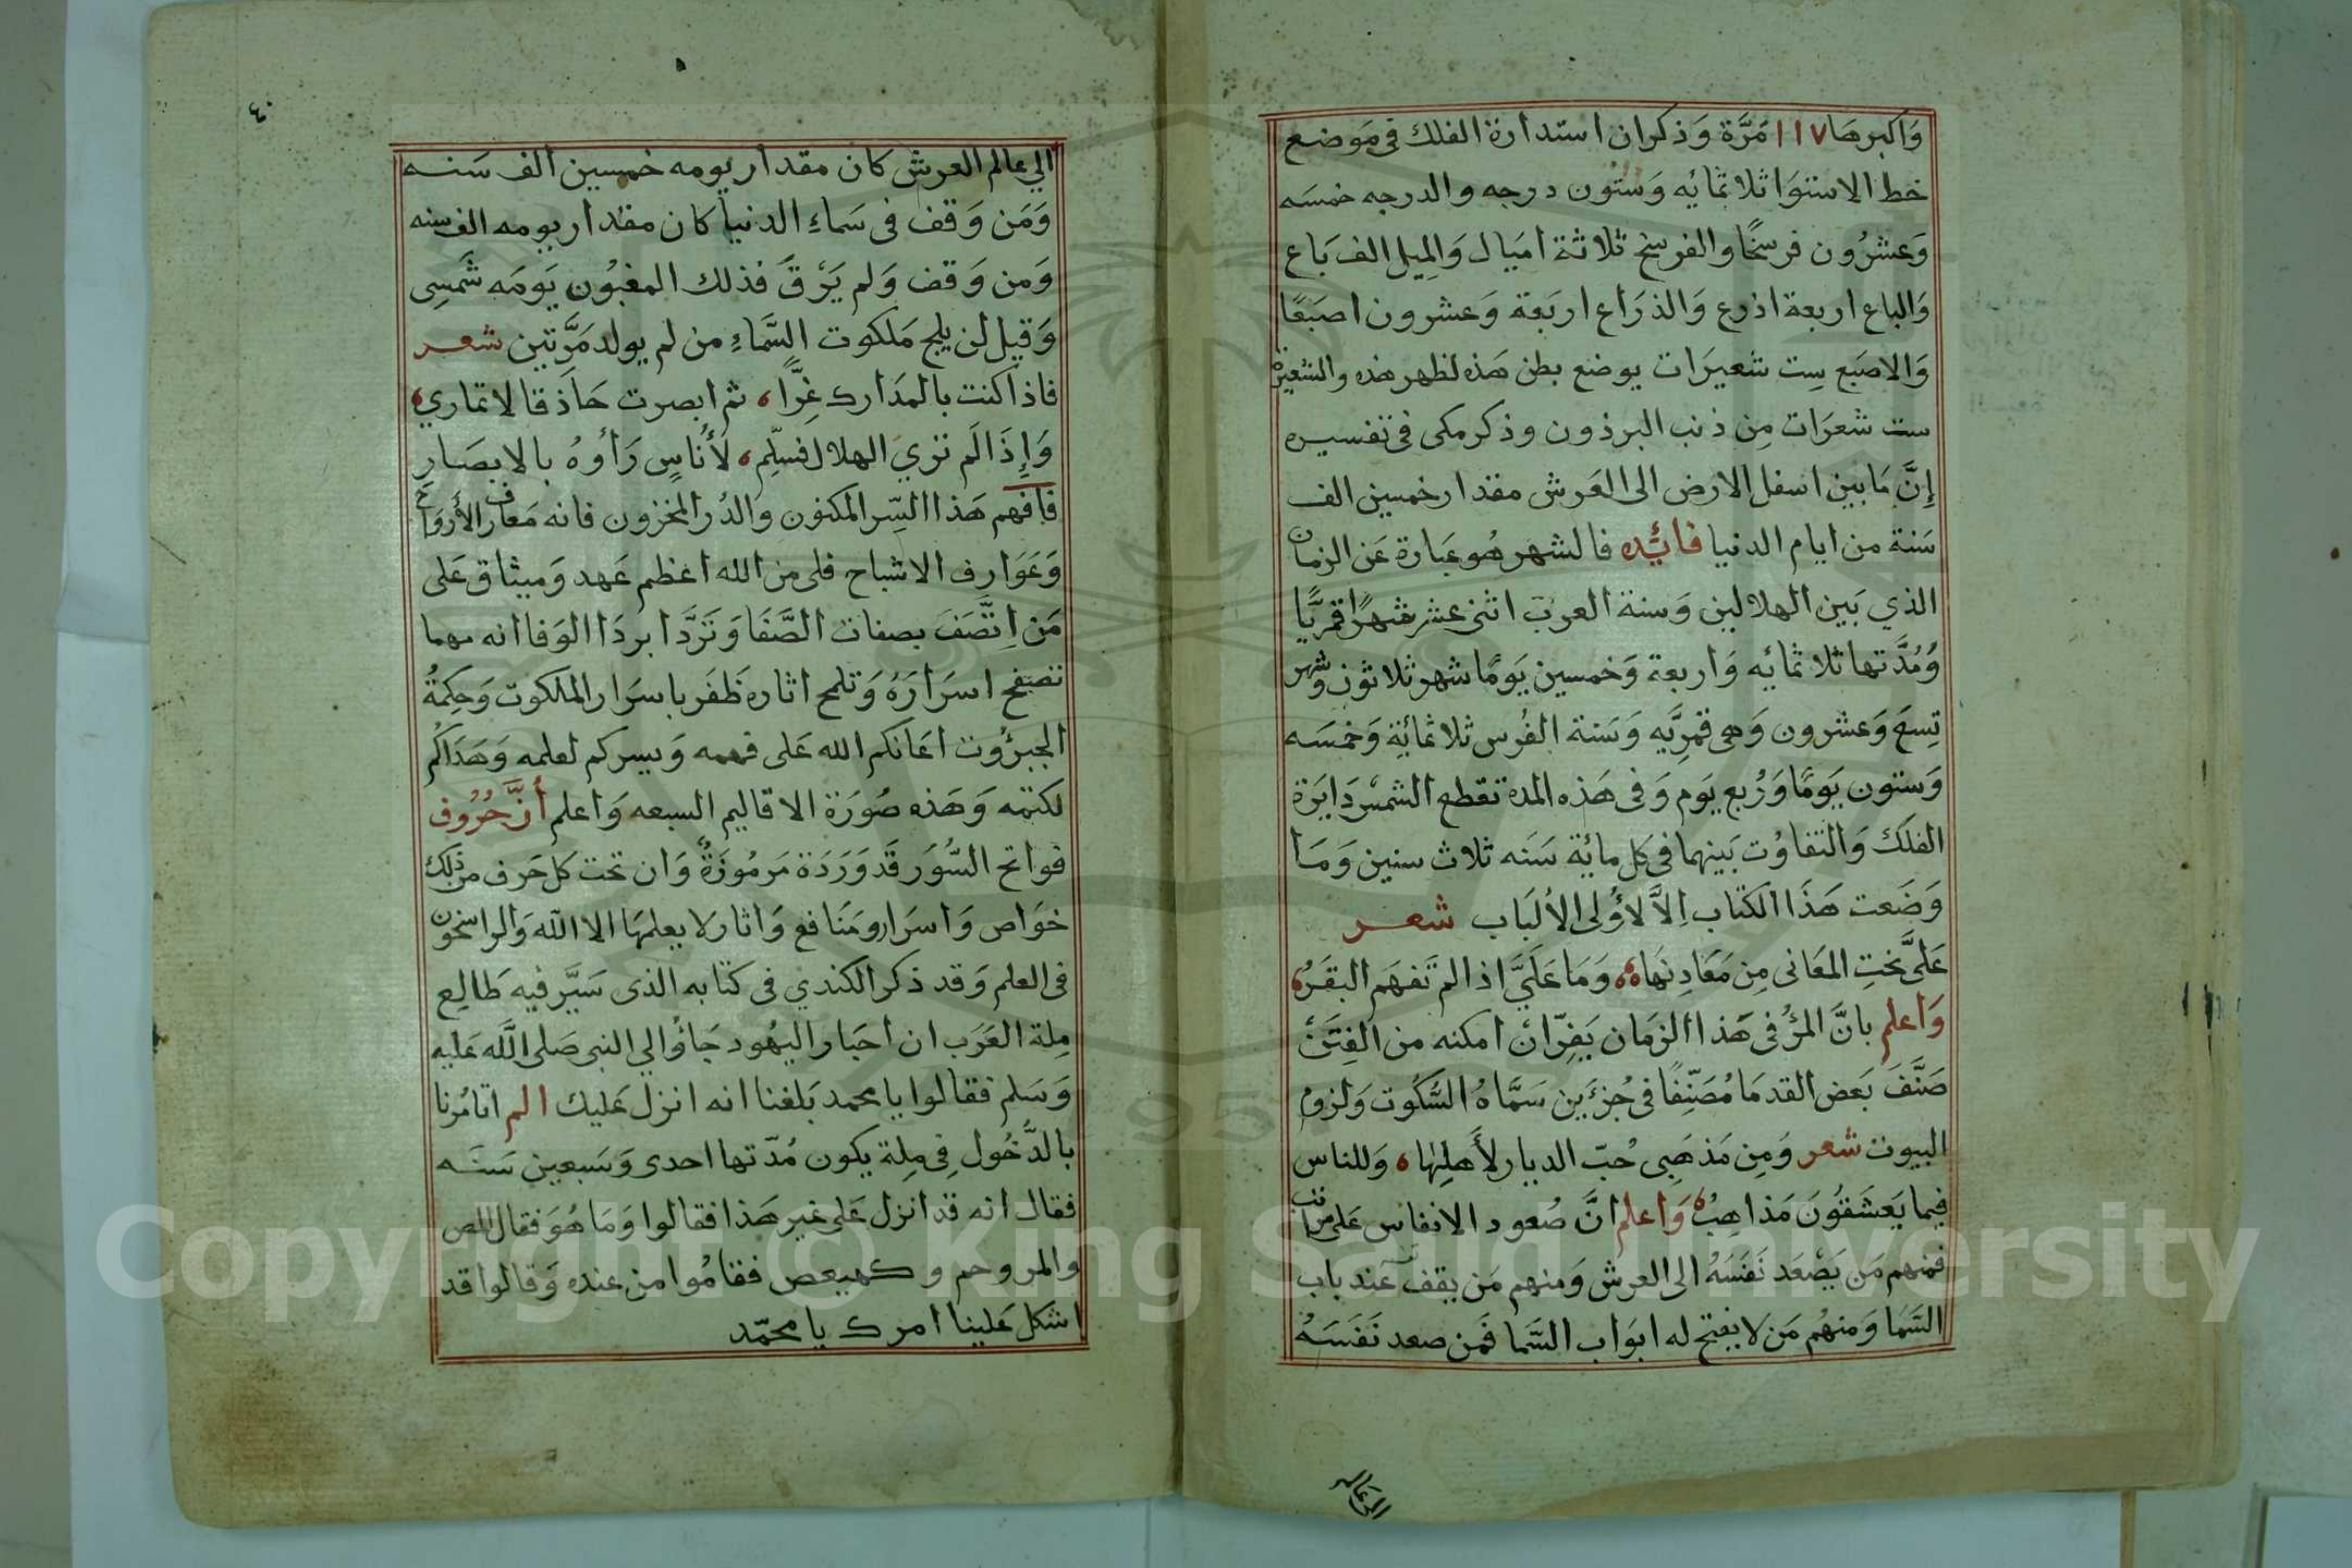 وَاكبرهَا ١١٧ مَرَّة وَذكران استدارة الفلك فى مَوضع
خط الاستوَا ثلاثمايه وَستُون درجه والدرجه خمسَه
وَعشرُون فرسخًا والفرسخ ثلاثة اميَال وَالمِيل الف بَاع
وَالباع اربعة اذرع وَالذرَاع اربَعة وَعشرون اصبَعًا
وَالاصبَع سِت شعيرَات يوضع بطن هَذه لظهر هذه والشعيرة
ست شعرَات مِن ذنب البرذون وذكر مكى فى تفسيره
إنَّ مَا بين اسفل الارض الى العَرش مقدار خمسين الف
سَنة من ايام الدنيا فائده فالشهر هُو عبَارة عَن الزمان
الذي بَين الهلالين وَسنة العرب اثنى عشر شهرًا قمريًّا
وَمُدَّتها ثلاثمائه وَاربعة وَخمسين يَومًا شهر ثلاثون وشهر
تِسعَ وَعشرون وَهى قمرِيَّه وَسَنة الفُرس ثلاثمائة وَخمسَه
وَستون يَومًا وَرُبع يَوم وَفى هَذه المدة تقطع الشمسُ دَايرَة
الفلَك وَالتفاوُت بَينهما فى كل مائة سَنه ثلاث سنين وَمَا
وَضَعت هَذَا الكتاب اِلاَّ لاؤُلى الألبَاب شعر
عَلَىَّ نحتِ المعَانى مِن مَعَادِنهَا وَمَا عَلَىَّ اذا لم تَفهَم البقَرُ
وَاعلم بانَّ المرُ فى هَذا الزمَان يَفِرّ ان امكنه من الفِتَن
صَنَّفَ بَعض القدمَا مُصَنّفًا فى جُزءَين سَمَّاهُ السُّكُوت وَلزوم
البيوت شعر وَمِن مَذهَبِى حُبّ الديار لأَهلِهَا وَللناس
فيما يَعشَقُونَ مَذاهِبُ وَاعلم انَّ صُعود الانفاس عَلى مراتب
فمنهم مَن يَصْعَد نَفَسَهُ الى العرش وَمنهم مَن يقف عند باب
السَّمَا وَمنهُم مَن لا يفتح له ابوَاب السَّمَا فمَن صعد نَفَسَهُ
الى عالم
٤٠
الي عالم العرش كان مقدار يومه خمسين الف سَنه
وَمَن وَقف فى سَماءِ الدنيا كان مقدار يومه الف سنه
وَمن وَقف وَلم يَرْقَ فذلك المغبُون يَومَه شَمسِى
وَقيل لن يلج مَلكوت السَّمَاءِ من لم يولد مَرَّتين شعر
فاذا كنت بالمدَارك غِرًّا ثم ابصرت حَاذقا لا تماري
وَإِذَا لَم تري الهلال فسَلِّم لأُناسٍ رَأَوهُ بالابصَارِ
فافهم هَذا السِّر المكنون وَالدُر المخزون فانه مَعارف الأروَاح
وَعَوَارِف الاشباح فلى من الله اعظم عَهد وَميثاق عَلى
مَن اِتَّصَفَ بصفات الصَّفَا وَتَرَدَّا بردَا الوَفا انه مهما
تصفح اسرَارَهُ وَتلمح اثاره ظَفَر باسرَار الملكوت وَحِكمةُ
الجبرُوت اعَانكم الله عَلى فهمه وَيسركم لعلمه وَهَدَاكُم
لكتمه وَهَذه صُورَة الاقاليم السبعه وَاعلم أنَّ حُرُوف
فواتح السُّوَر قَد وَرَدَة مَرمُوزَةٌ وَان تحت كل حَرف من ذلك
خوَاص وَاسرَار ومَنَافع وَاثار لا يعلمهَا الا الله وَالراسخون
فى العلم وَقد ذكر الكندي فى كتابه الذى سَيَّر فيه طَالِع
مِلة العَرَب ان احبَار اليهُود جَاؤا الي النبى صَلى اللَّه عَليه
وَسَلم فقالوا يا محمد بَلغنا انه انزل عَليك الم اتامُرنا
بالدُّخُول فِى مِلة يكون مُدّتها احدى وَسَبعين سَنَه
فقال انه قد انزل عَلى غير هَذا فقالوا وَمَا هُوَ فقال المص
والمر وحم و كهيعص فقامُوا من عنده وَقالوا قد
اشكل عَلينا امرك يا محمّد
Copyright © King Saud University